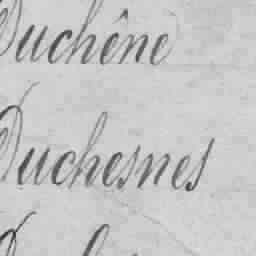 Duchêne
Duchesnes